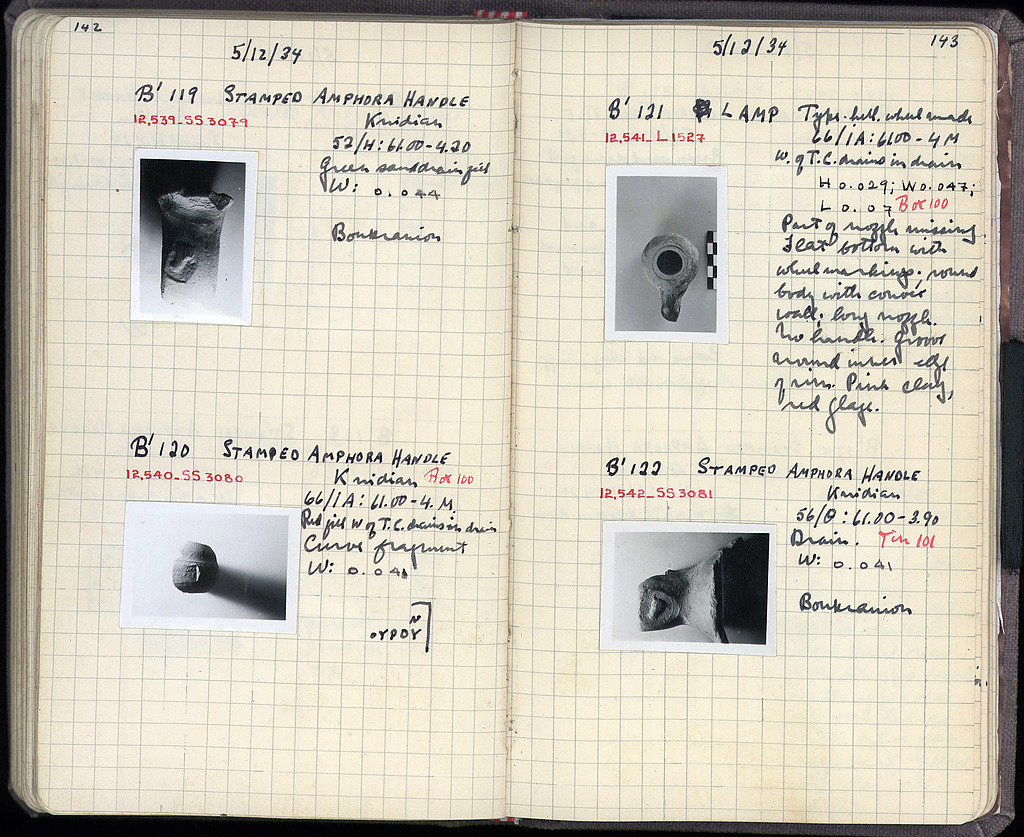 142
5/12/34
B' 119 STAMPED AMPHORA HANDLE
12,539_SS 3079
Knidian
52/H: 61.00-4.20
Green sand drain fill
W: 0.044
Boukranion
B' 120 STAMPED AMPHORA HANDLE
12,540_SS 3080
Knidian Box 100
66/IA: 61.00-4. M.
Red fill W of T.C. drains in drain
Curve fragment
W: 0.041
5/12/34
143
B' 121 LAMP Type. hell. wheel made
12,541_L 1527
66/IA: 61.00-4 M
W. of T.C. drains in drain
H 0.029; W 0.047;
L 0.07 Box 100
Part of nozzle missing.
Flat bottom with
wheel markings. round
body with convex
wall. long nozzle.
No handle. groove
around inner edge
of rim. Pink clay,
red glaze.
B' 122 STAMPED AMPHORA HANDLE
12,542_SS 3081
Knidian
56/Θ: 61.00-3.90
Drain. Tin 101
W: 0.041
Boukranion